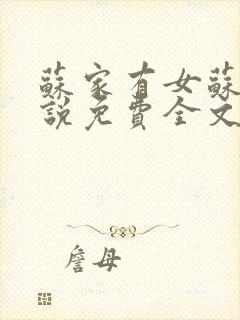 蘇家有女蘇
說免費全文
詹母